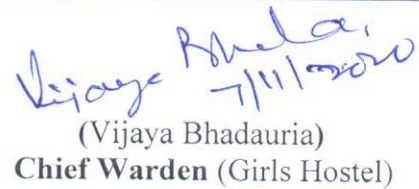 Vijaya Bhada.
7/11/2020
(Vijaya Bhadauria)
Chief Warden (Girls Hostel)